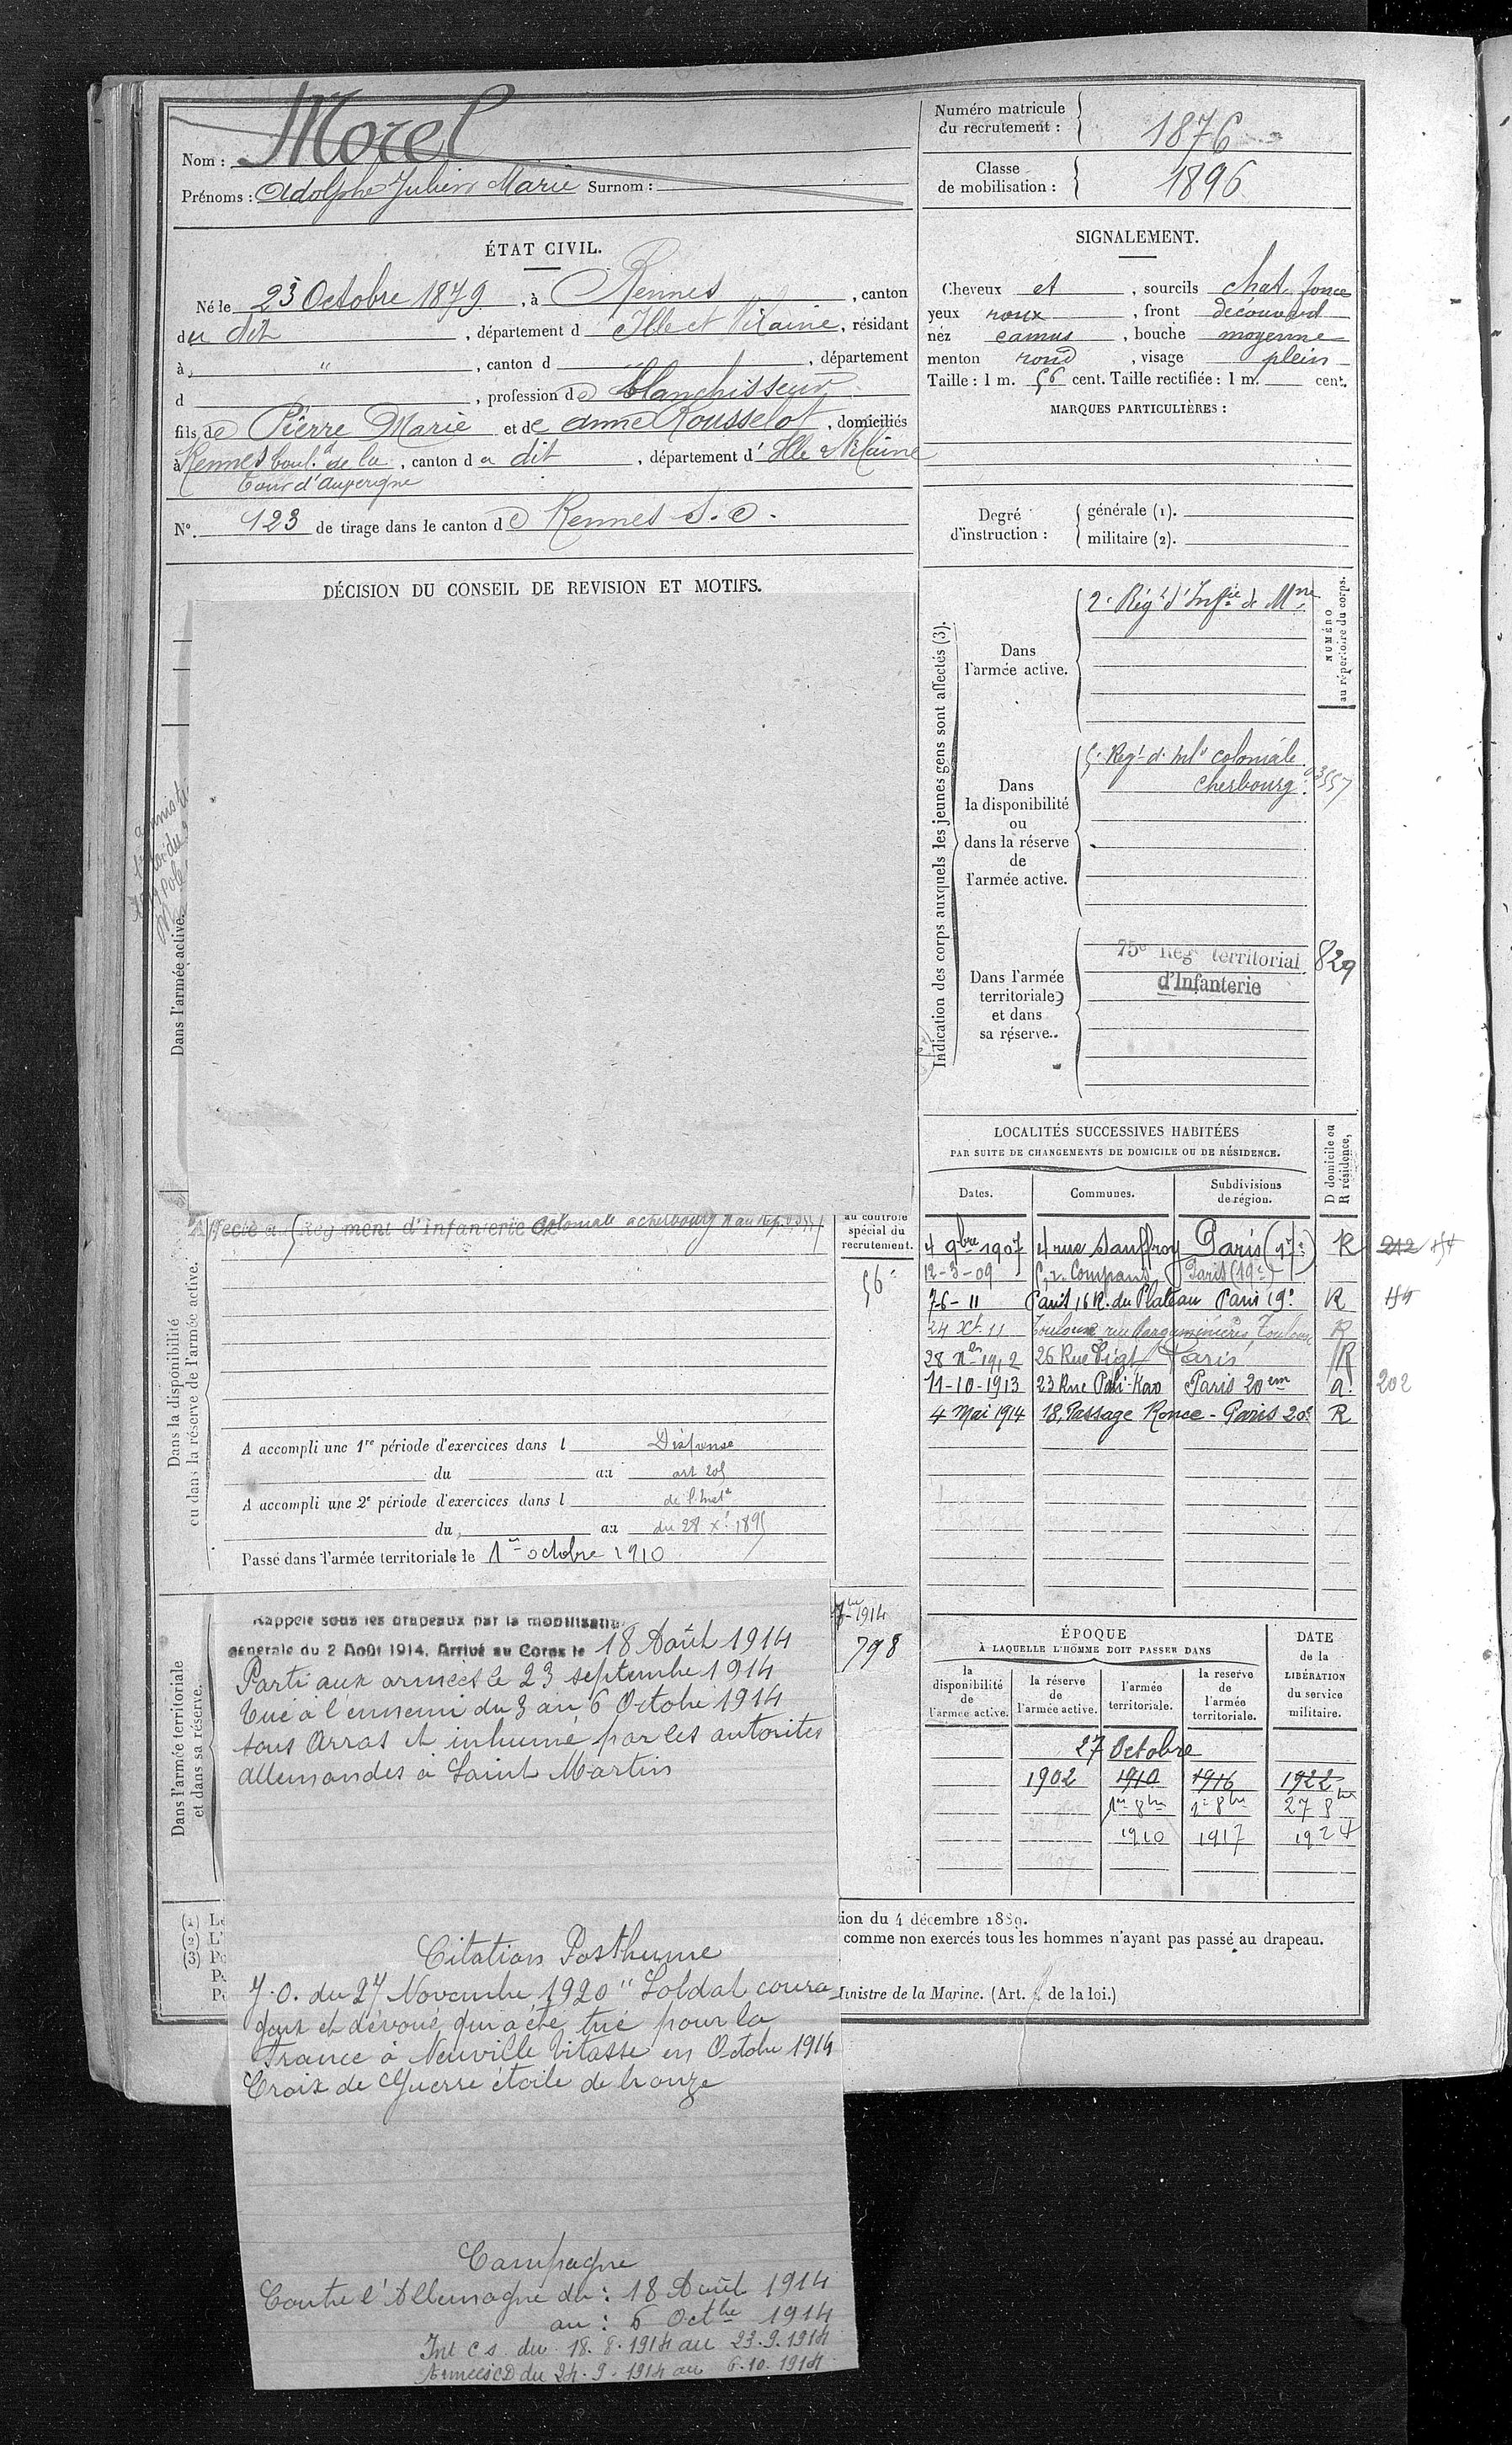 Nom : Morel
Prénoms : Adolphe Julien Marie Surnom :
ÉTAT CIVIL.
Né le 23 Octobre 1879, à Rennes, canton
du dit, département d Ille et Vilaine, résidant
à, " , canton d , département
d , profession de blanchisseur
fils de Pierre Marie et de Anne Rousselot, domiciliés
à Rennes boul.d de la, canton du dit, département d' Ille & Vilaine
Tour d'Auvergne
N°. 123 de tirage dans le canton de Rennes S. O.
DÉCISION DU CONSEIL DE REVISION ET MOTIFS.
Dans l'armée active.
Affecté au 5 Régiment d'Infanterie Coloniale à Cherbourg
au contrôle
spécial du
recrutement.
56
Dans la disponibilité
ou dans la réserve de l'armée active.
A accompli une 1re période d'exercices dans l Dispense
du au art 205
A accompli une 2e période d'exercices dans l de l'Inst.n
du au du 28 Xe 1895
Passé dans l'armée territoriale le 1er octobre 1910
Dans l'armée territoriale
et dans sa réserve.
Rappelé sous les drapeaux par la mobilisation
générale du 2 Août 1914. Arrivé au Corps le 18 Août 1914
Parti aux armées le 23 septembre 1914
Tué à l'ennemi du 3 au 6 Octobre 1914
sous Arras et inhumé par les autorités
allemandes à Saint Martin
1914
798
Citation Posthume
J.O. du 27 Novembre 1920 "Soldat coura
geux et dévoué qui a été tué pour la
France à Neuville Vitasse en Octobre 1914
Croix de Guerre étoile de bronze
Campagne
Contre l'Allemagne du : 18 Août 1914
au : 6 Octbre 1914
Int C S. du 18.8.1914 au 23.9.1914
Armées CD du 24.9.1914 au 6.10.1914
(1) Le
(2) L'
(3) Po
ion du 4 décembre 1889.
comme non exercés tous les hommes n'ayant pas passé au drapeau.
Ministre de la Marine. (Art. de la loi.)
Numéro matricule
du recrutement : 1876
Classe
de mobilisation : 1896
SIGNALEMENT.
Cheveux et , sourcils chat. foncé
yeux roux , front découvert
nez camus , bouche moyenne
menton rond , visage plein
Taille : 1 m. 56 cent. Taille rectifiée : 1 m. cent.
MARQUES PARTICULIÈRES :
Degré
d'instruction :
générale (1).
militaire (2).
Indication des corps auxquels les jeunes gens sont affectés (3).
NUMÉRO
au répertoire du corps.
Dans
l'armée active.
2e Régt d'Infie de Mne
Dans
la disponibilité
ou
dans la réserve
de
l'armée active.
5e Regt d. Infie coloniale
Cherbourg. 03557
Dans l'armée
territoriale
et dans
sa réserve..
75e Régt territorial
d'Infanterie
829
LOCALITÉS SUCCESSIVES HABITÉES
PAR SUITE DE CHANGEMENTS DE DOMICILE OU DE RÉSIDENCE.
D domicile ou
R résidence.
Dates. Communes. Subdivisions
de région.
4 9bre 1907 4 rue Sauffroy Paris (17e) R 212
12-3-09 5, r. Compans Paris (19e)
7-6-11 Paris 16 R. du Plateau Paris 19e R
24 Xe 11 Toulouse rue Pargaminières Toulouse R
28 1912 26 Rue Vigt Paris R
11-10-1913 23 Rue Pali-Kao Paris 20em 202
4 Mai 1914 18, Passage Ronce - Paris 20e R
ÉPOQUE
À LAQUELLE L'HOMME DOIT PASSER DANS
DATE
de la
LIBÉRATION
du service
militaire.
la
disponibilité
de
l'armée active.
la réserve
de
l'armée active.
l'armée
territoriale.
la réserve
de
l'armée
territoriale.
27 Octobre
1902 1910 1916 1922
1er 8bre 1er 8bre 27 8bre
1910 1917 1924